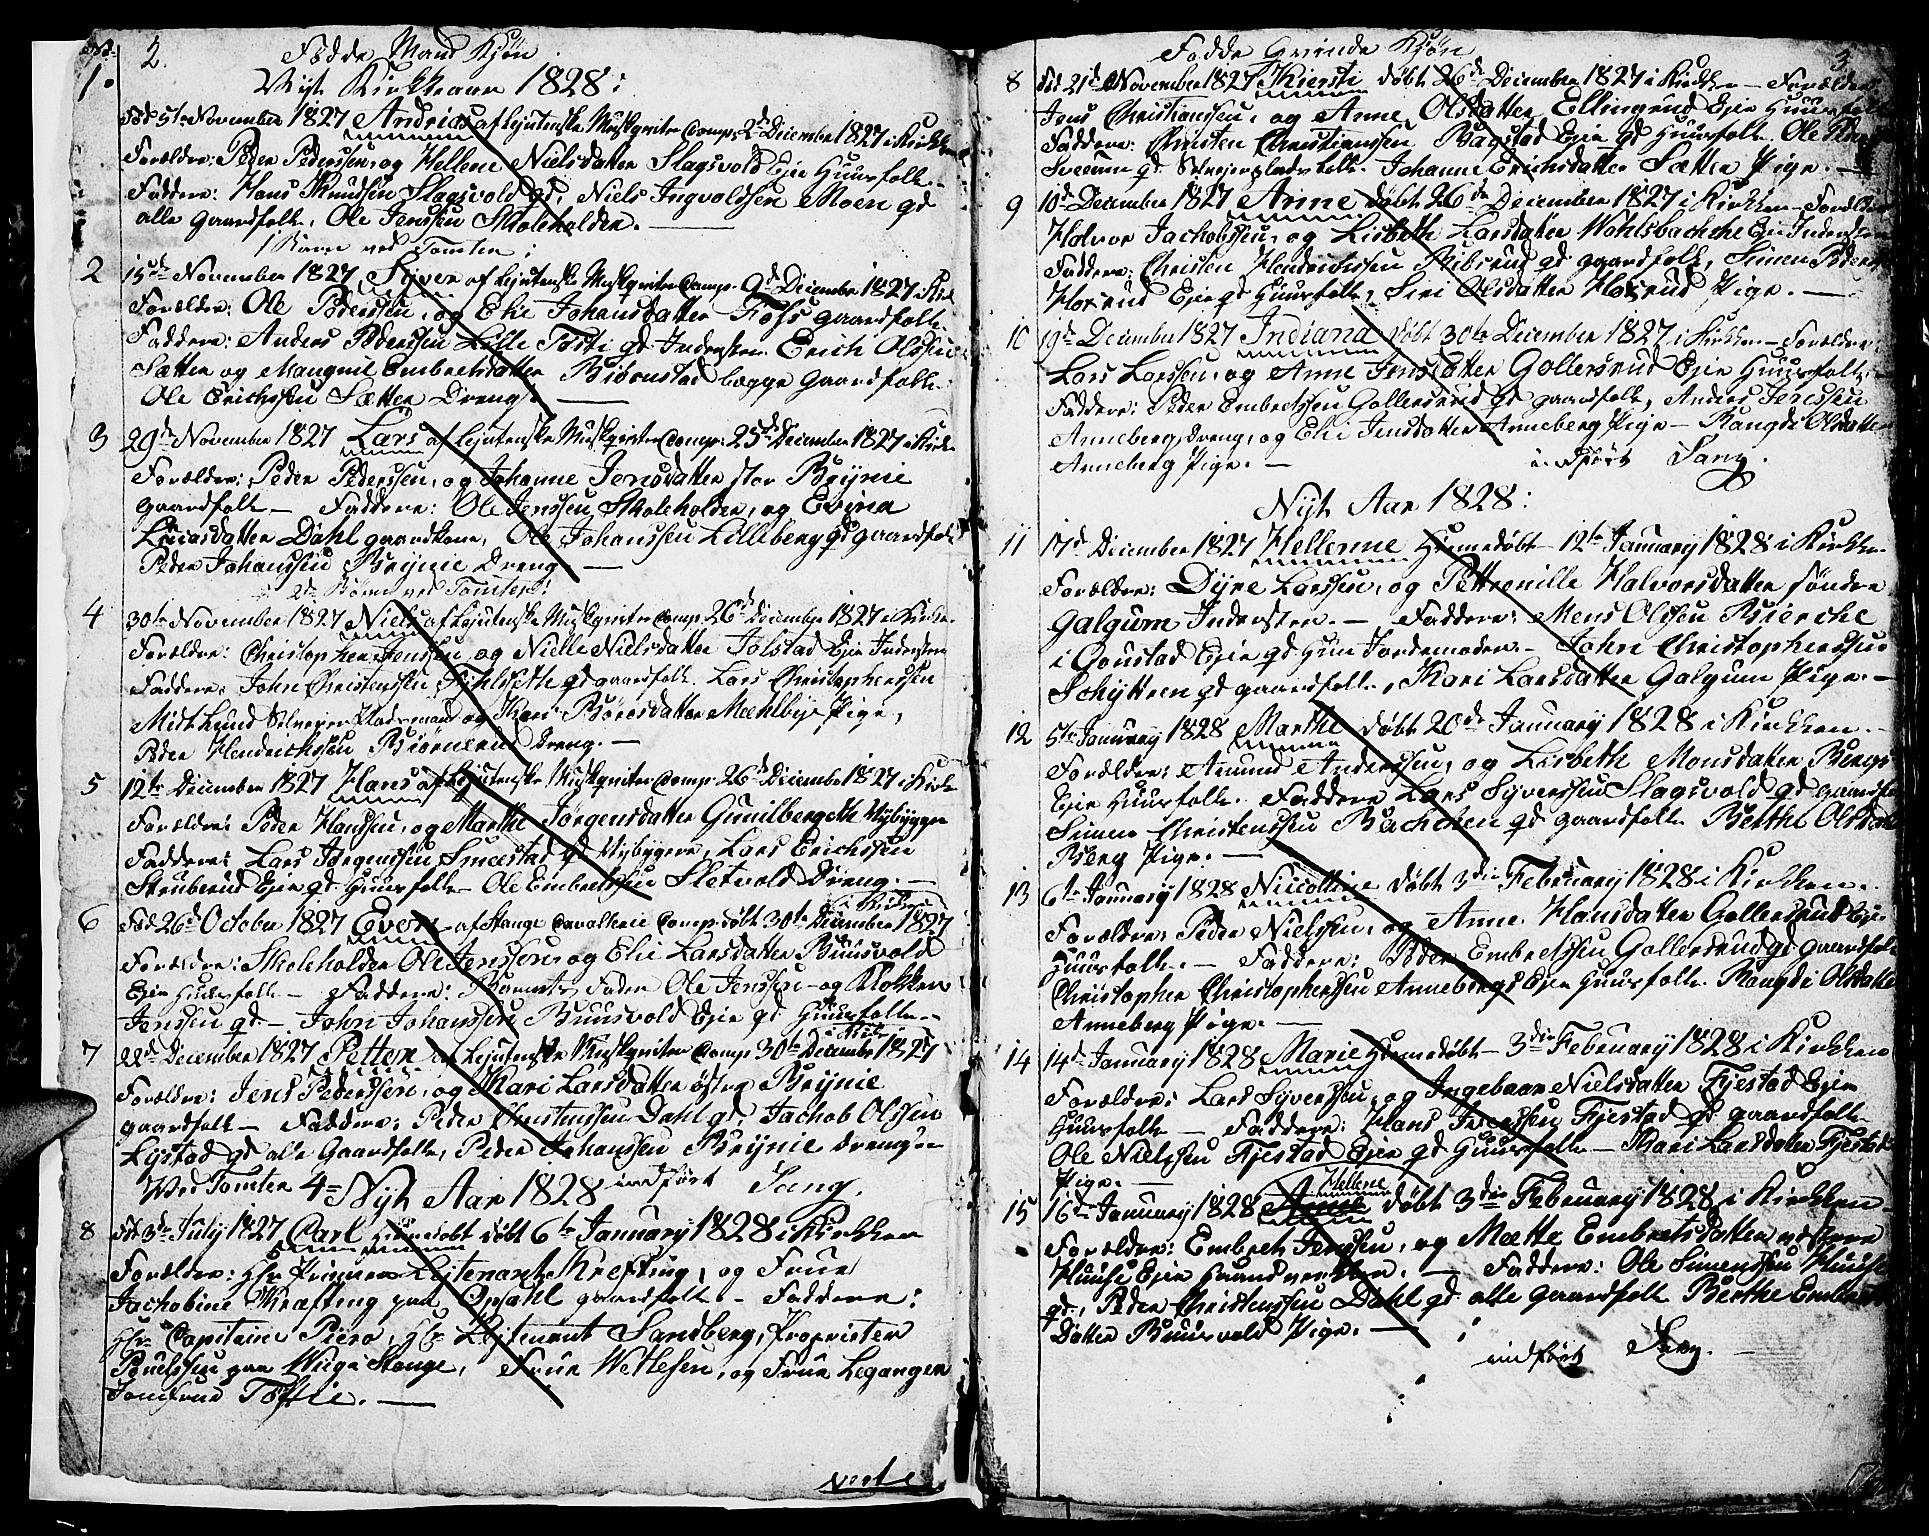 2.
Fødde Mand Kjøn
Nyt Kirkeaar 1828:
1. Fød 5te November 1827 Andrias af Lejutenske Muskqviter Comp. 2d December 1827 i Kirken
Forældre: Peder Pedersen, og Hellene Nielsdatter Slagsvold Eje Huusfolk.
Faddere: Hans Knudsen Slagsvold gd, Niels Ingvoldsen Moen gd
alle gaardfolk, Ole Jenssen Skoleholder. —
1 Barn ved Tomter:
2 15de November 1827 Syver af Lejutenske Muskqviter Comp. 9d December 1827 i Kirk
Forældre: Ole Pederssen, og Elie Johansdatter Fohs gaardfolk.
Faddere: Anders Pederssen Lille Tøsti gd Inderster. Erich Olssen
Sætter og Mangnil Embretsdatter Biørnstad begge gaardfolk
Ole Erichssen Sætter Dreng. —
3 29de November 1827 Lars af Lejutenske Muskqviter Comp: 25de December 1827 i Kirk
Forældre: Peder Pederssen, og Johanne Jensdatter stor Brynie
gaardfolk — Faddere: Ole Jenssen Skoleholder, og Evina
Dahl gaardkone, Ole Johanssen Lilleberg gd gaardfolk
Peder Johanssen Brynie Dreng —
2de Børn ved Tomter:
4 30te November 1827 Niels af Lejutenske Muskqviter Comp. 26de December 1827 i Kirke
Forældre: Christopher Jenssen, og Nielle Nielsdatter Jolstad Eje Inderster
Faddere: John Christenssen gd gaardfolk. Lars Christopherssen
Midtlund Selvejer Pladsmand og Kari Børresdatter Mæhlbye Pige,
Peder Hendrichssen Biørnerud Dreng. —
5 12te December 1827 Hans af Lejutenske Muskqviter Comp. 26d December 1827 i Kirk
Forældre: Peder Hanssen, og Marthe Jørgensdatter Gunilbergeth Nybygger
Faddere: Lars Jørgenssen Smestad gd Nybygere, Lars Erichssen
Struberud Eje gd Huusfolk — Ole Embretssen Sletvold Dreng. —
i Kirken
6 Fød 26d October 1827 Even af Stange Cavallerie Comp. døbt 30te December 1827
Forældre: Skoleholder Ole Jenssen, og Elie Larsdatter Buusvold
Eje Huusfolk — Faddere: Barnets Fader Ole Jenssen og Klokker
Jenssen gd. — John Johanssen Buusvold Eje gd Huusfolk. —
i Kirk
7 22d December 1827 Petter af Lejutenske Muskqviter Comp 30te December 1827
Forældre: Jens Pederssen, og Kari Larsdatter østre Brynie
gaardfolk — Faddere: Peder Christenssen Dahl gd, Jachob Olssen
Lystad gd alle gaardfolk, Peder Johanssen Brynie Dreng. —
Ved Tomter 4 = Nyt Aar 1828 indført Sang.
8 Fød 3d July 1827 Carl hiemmedøbt døbt 6te January 1828 i Kirken
Forældre: Hr Premier Lejtenant Krefting, og Frue
Jachobine Kræfting paa Opsahl gaardfolk — Faddere:
Hr Capitaine Piero, Hr Lejtenant Sandberg, Proprietær
Poulssen paa Viiga Stange, Frue Wetlesen, og Frue Legangen
Jomfrue Toftie. —
verte

3
Fødde Qvinde Kjøn
8 Fød 21d November 1827 Kiersti døbt 26de December 1827 i Kirken — Forældre
Jens Christianssen, og Anne Olsdatter Ellingrud Eje Huusfolk
Faddere: Christen Christianssen Bagstad Eje gd Huusfolk. Ole
Sveum gd Selvejerpladsfolk. Johanne Erichsdatter Sætter Pige. —
9 10de December 1827 Anne døbt 26de December 1827 i Kirken — Forældre
Halvor Jachobssen, og Lisbeth Larsdatter Wohlsbachche Eje Inderster
Faddere: Christen Hendrichssen Ribsrud gd gaardfolk, Simen Peders
Horsrud Eje gd Huusfolk, Siri Olsdatter Horsrud Pige. —
10 19de December 1827 Indiana døbt 30te December 1827 i Kirken — Forældre
Lars Larssen, og Anne Jensdatter Gollersrud Eje Huusfolk —
Faddere: Peder Embretssen Gollersrud gd gaardfolk, Anders Jenssen
Anneberg Dreng, og Eli Jensdatter Anneberg Pige — Rangdi Olsdatter
Anneberg Pige. — indført Sang.
Nyt Aar 1828:
11 17d December 1827 Hellenne hiemmedøbt — 12te January 1828 i Kirken
Forældre: Dyre Larssen, og Pettronille Halvorsdatter søndre
Galgum Inderster. — Faddere: Mons Olssen Bierche
i Gaustad Eje gd Hun Jordemoder. — John Christopherssen
Schyttren gd gaardfolk, Kari Larsdatter Galgum Pige. —
12 5te January 1828 Marthe døbt 20de January 1828 i Kirken. —
Forældre: Amund Anderssen, og Lisbeth Monsdatter Bergs
Eje Huusfolk. Faddere Lars Syverssen Slagsvold gd gaardfo
Simen Christenssen Bachchen gd gaardfolk Berthe Olsdat
Berg Pige. —
13 6te January 1828 Niicolline døbt 3die February 1828 i Kirken.
Forældre: Peder Nielssen, og Anne Hansdatter Gollersrud Eje
Huusfolk. — Faddere: Peder Embretssen Gollersrud gd gaardfolk
Christopher Christopherssen Annebergs Eje Huusfolk. Rangdi Olsdatter
Anneberg Pige. —
14 14de January 1828 Marie hiemmedøbt — 3die February 1828 i Kirken
Forældre: Lars Syverssen, og Ingebaar Nielsdatter Fjestad Eje
Huusfolk — Faddere: Hans Iverssen Fjestad gd gaardfolk
Ole Nielssen Fjestad Eje gd Huusfolk — Kari Larsdatter Fjestad
Pige. —
Hellene
15 16de January 1828 Anne døbt 3die February 1828 i Kirken
Forældre: Embret Jenssen, og Mette Embretsdatter
Huuse Eje Haandverker. — Faddere: Ole Simenssen Huuse
gd, Peder Christenssen Dahl gd alle gaardfolk Berthe Embrets
Datter Buusvold Pige. —
indført Sang. —